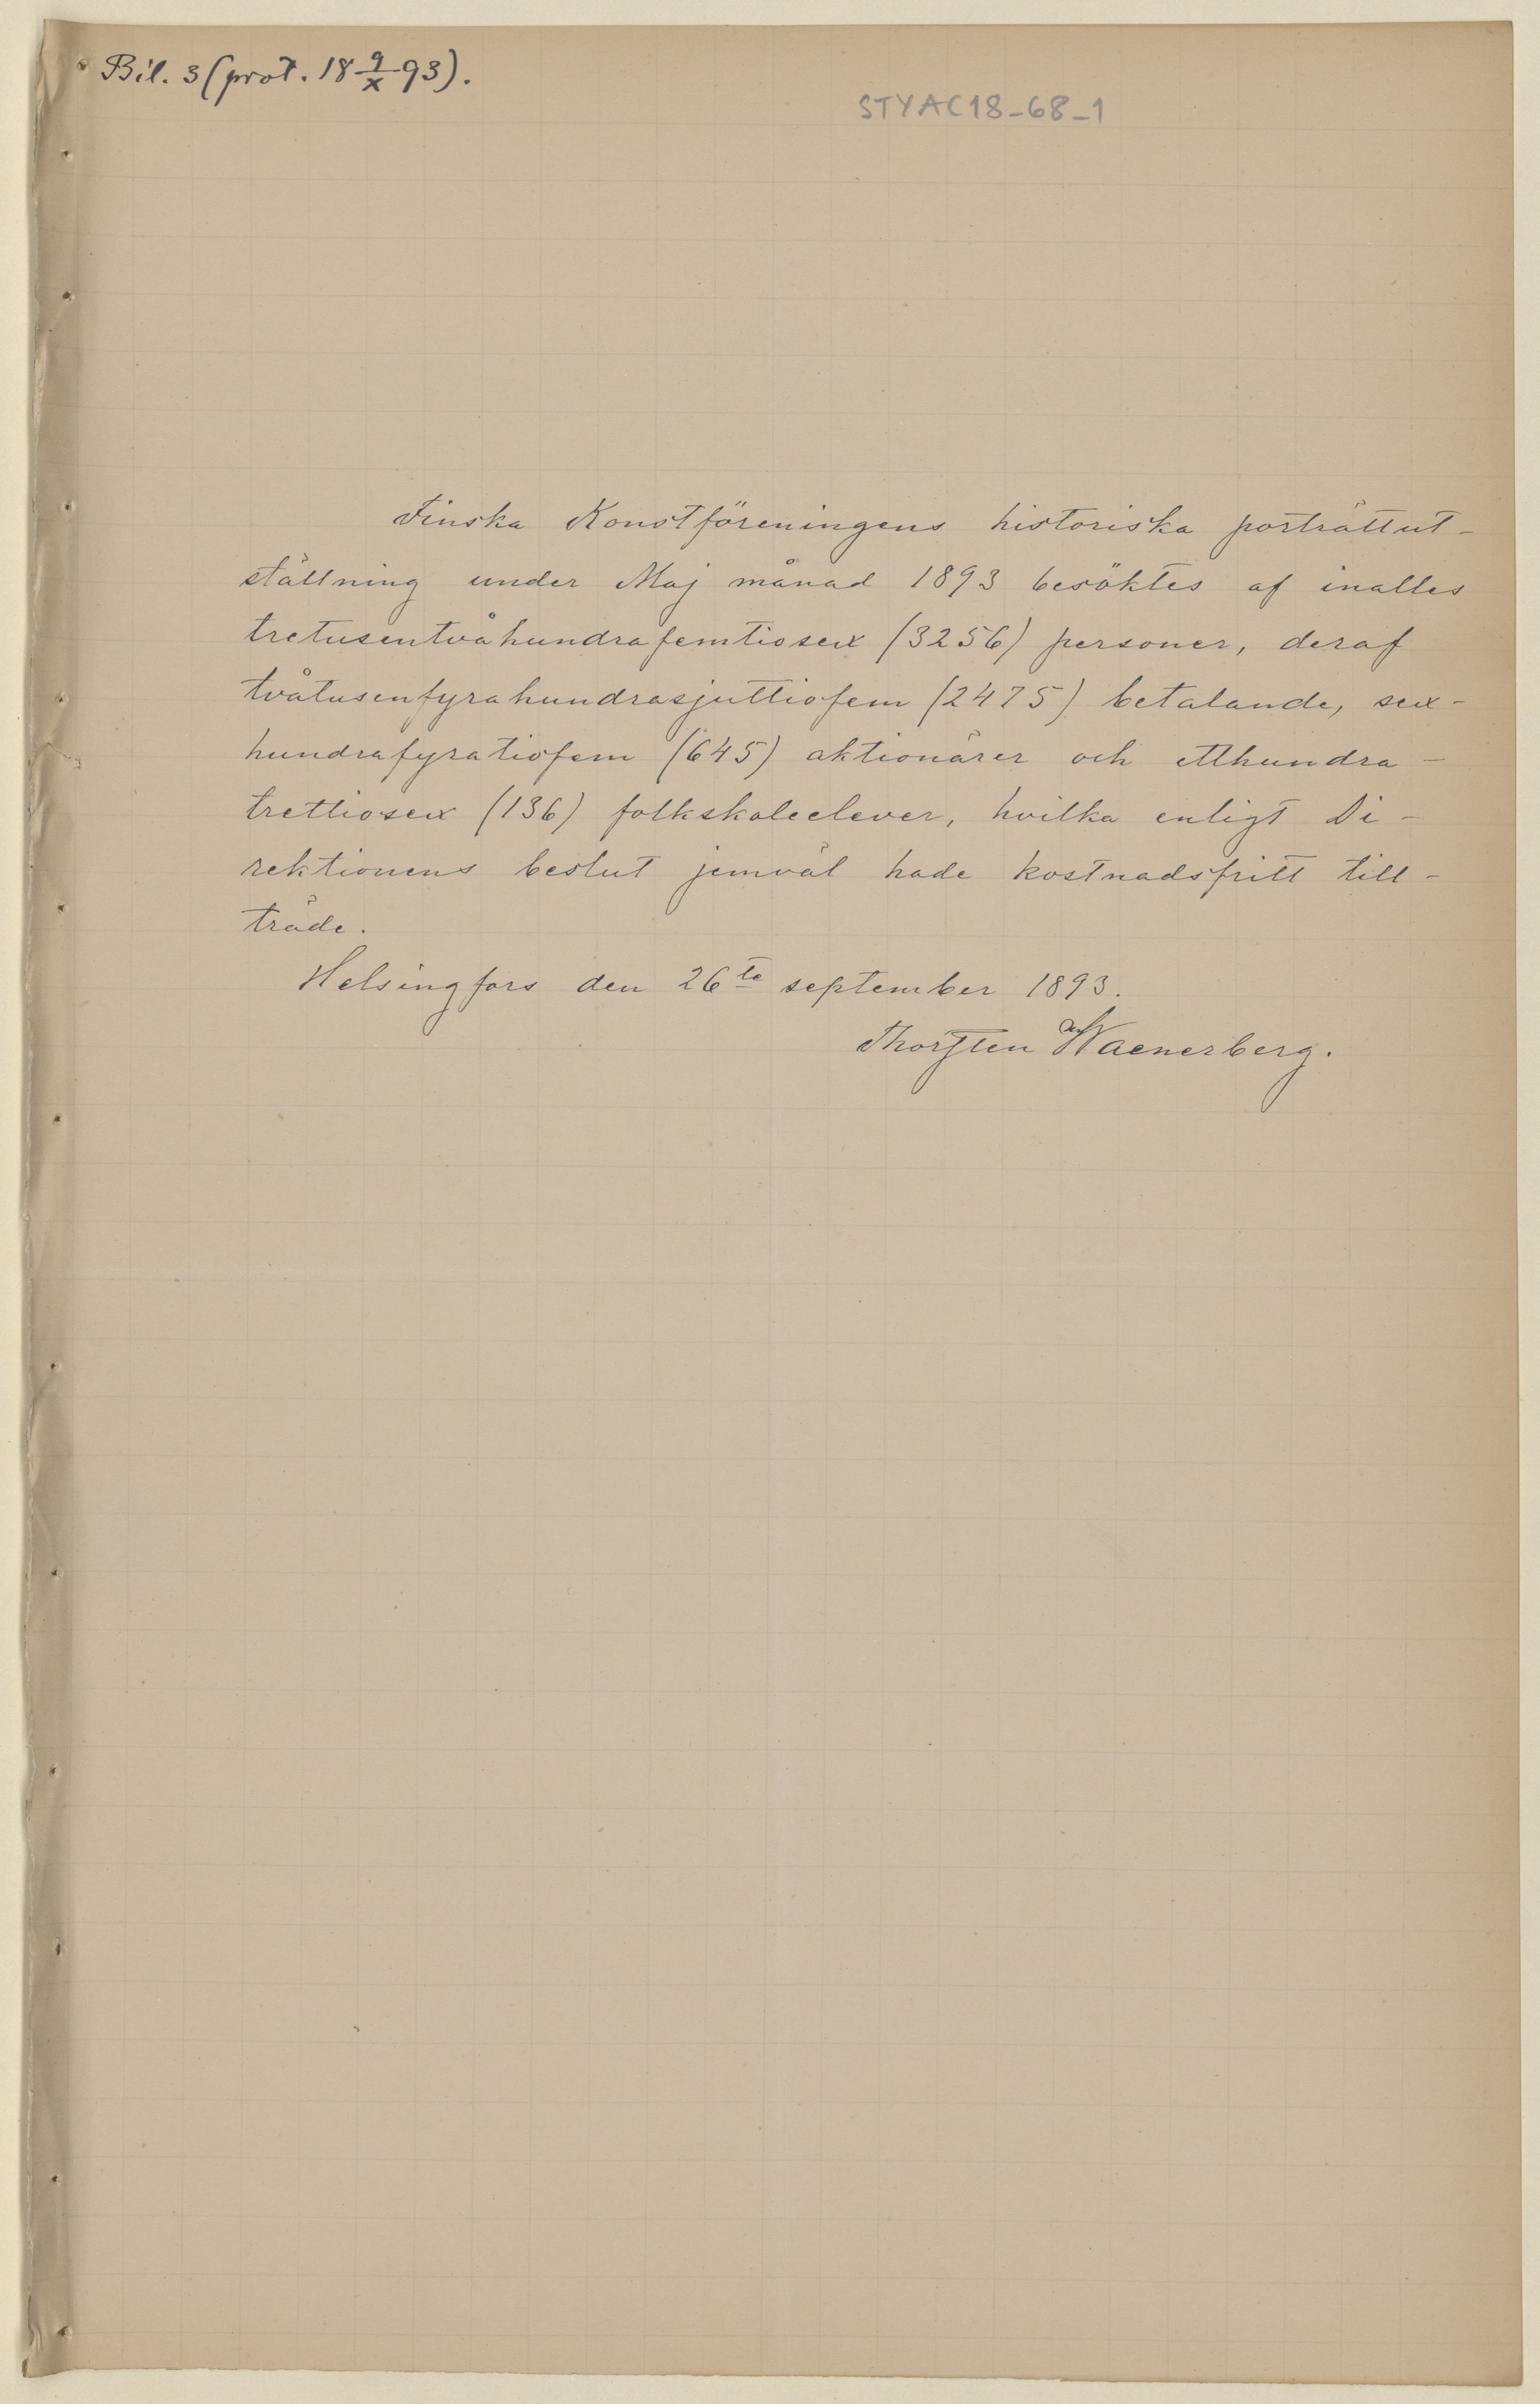 Bil. 3 (prot. 18 9/X 93).
STYAC18-68-1
Finska Konstföreningens historiska porträttut-
ställning under Maj månad 1893 besöktes af inalles
tretusentvåhundrafemtiosex (3256) personer, deraf
tvåtusenfyrahundrasjuttiofem (2475) betalande, sex-
hundrafyratiofem (645) aktionärer och etthundra-
trettiosex (136) folkskoleelever, hvilka enligt Di-
rektionens beslut jemväl hade kostnadsfritt till-
träde.
Helsingfors den 26te september 1893.
Thorsten Waenerberg.